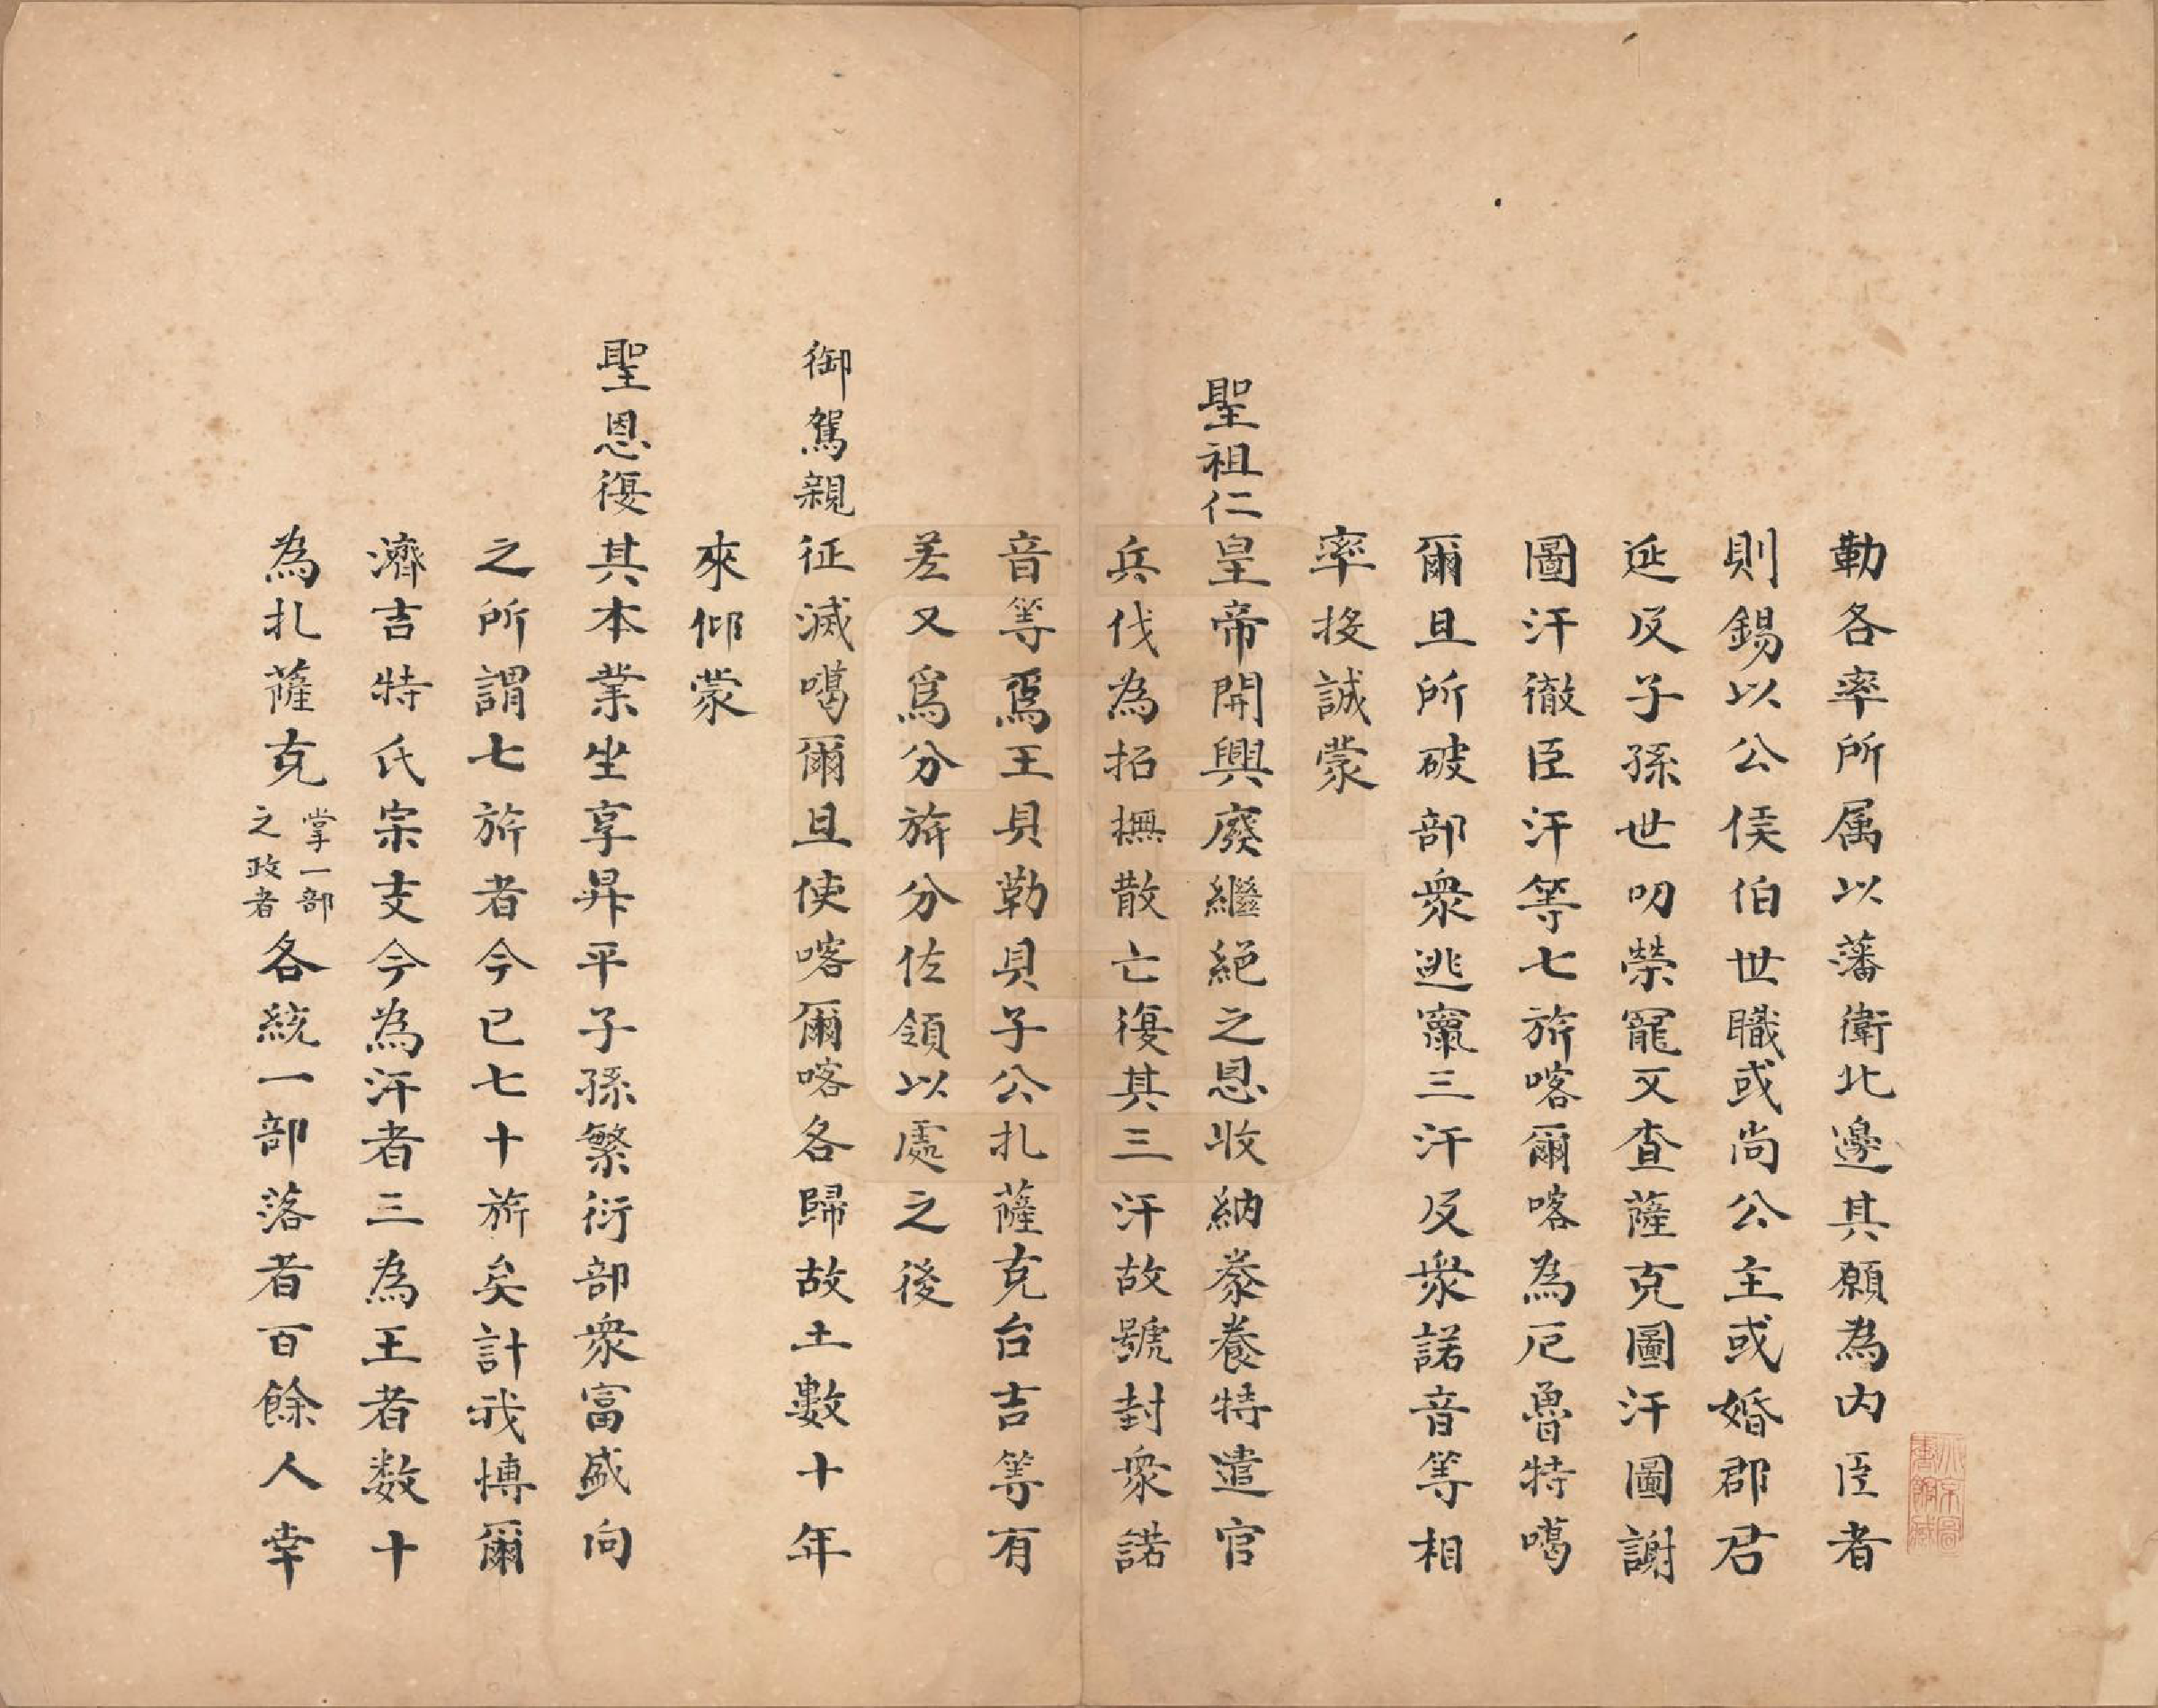 勒各率所属以藩衛北邊其願為内臣者
則錫以公侯伯世職或尚公主或婚郡君
延及子孫世叨榮寵又查薩克圖汗圖謝
圖汗徹臣汗等七旂喀爾喀為厄魯特噶
爾旦所破部衆逃竄三汗及衆諾音等相
率投誠蒙
聖祖仁皇帝開興廢繼絕之恩收納豢養特遣官
兵伐為招撫散亡復其三汗故號封衆諾
音等爲王貝勒貝子公扎薩克台吉等有
差又爲分旂分佐領以處之後
御駕親征滅噶爾旦使喀爾喀各歸故土數十年
來仰蒙
聖恩復其本業坐享昇平子孫繁衍部衆富盛向
之所謂七旂者今已七十旂矣計我博爾
濟吉特氏宗支今為汗者三為王者数十
為扎薩克掌一部之政者各統一部落者百餘人幸